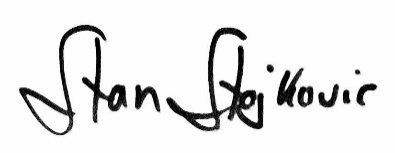 Stan Stejkovic